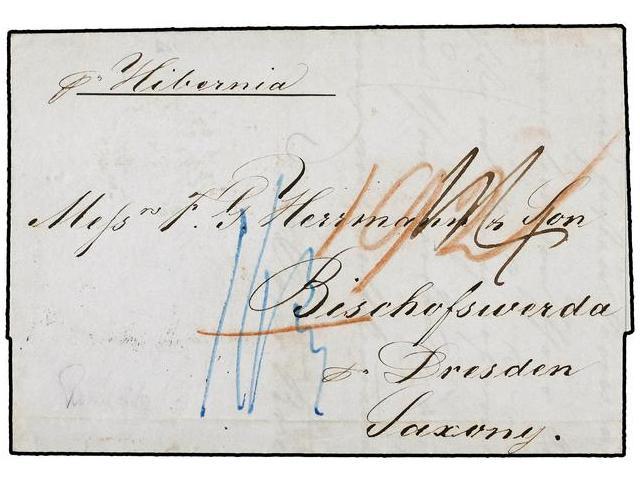 pr Hibernia
Messrs F. G Herrmann & Son
Bischofswerda
pr Dresden
Saxony.